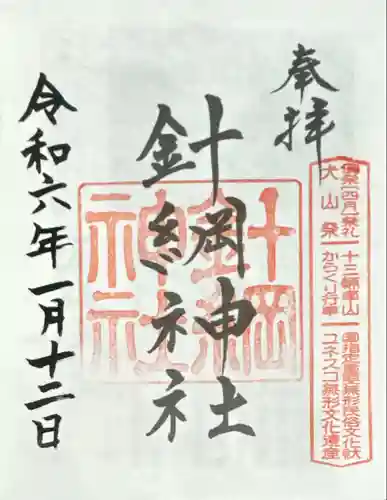 奉拝
針綱神社
令和六年一月十二日
針綱
神社
例祭(四月)祭礼
犬山祭
十三輌車山
からくり行事
国指定重要無形民俗文化財
ユネスコ無形文化遺産